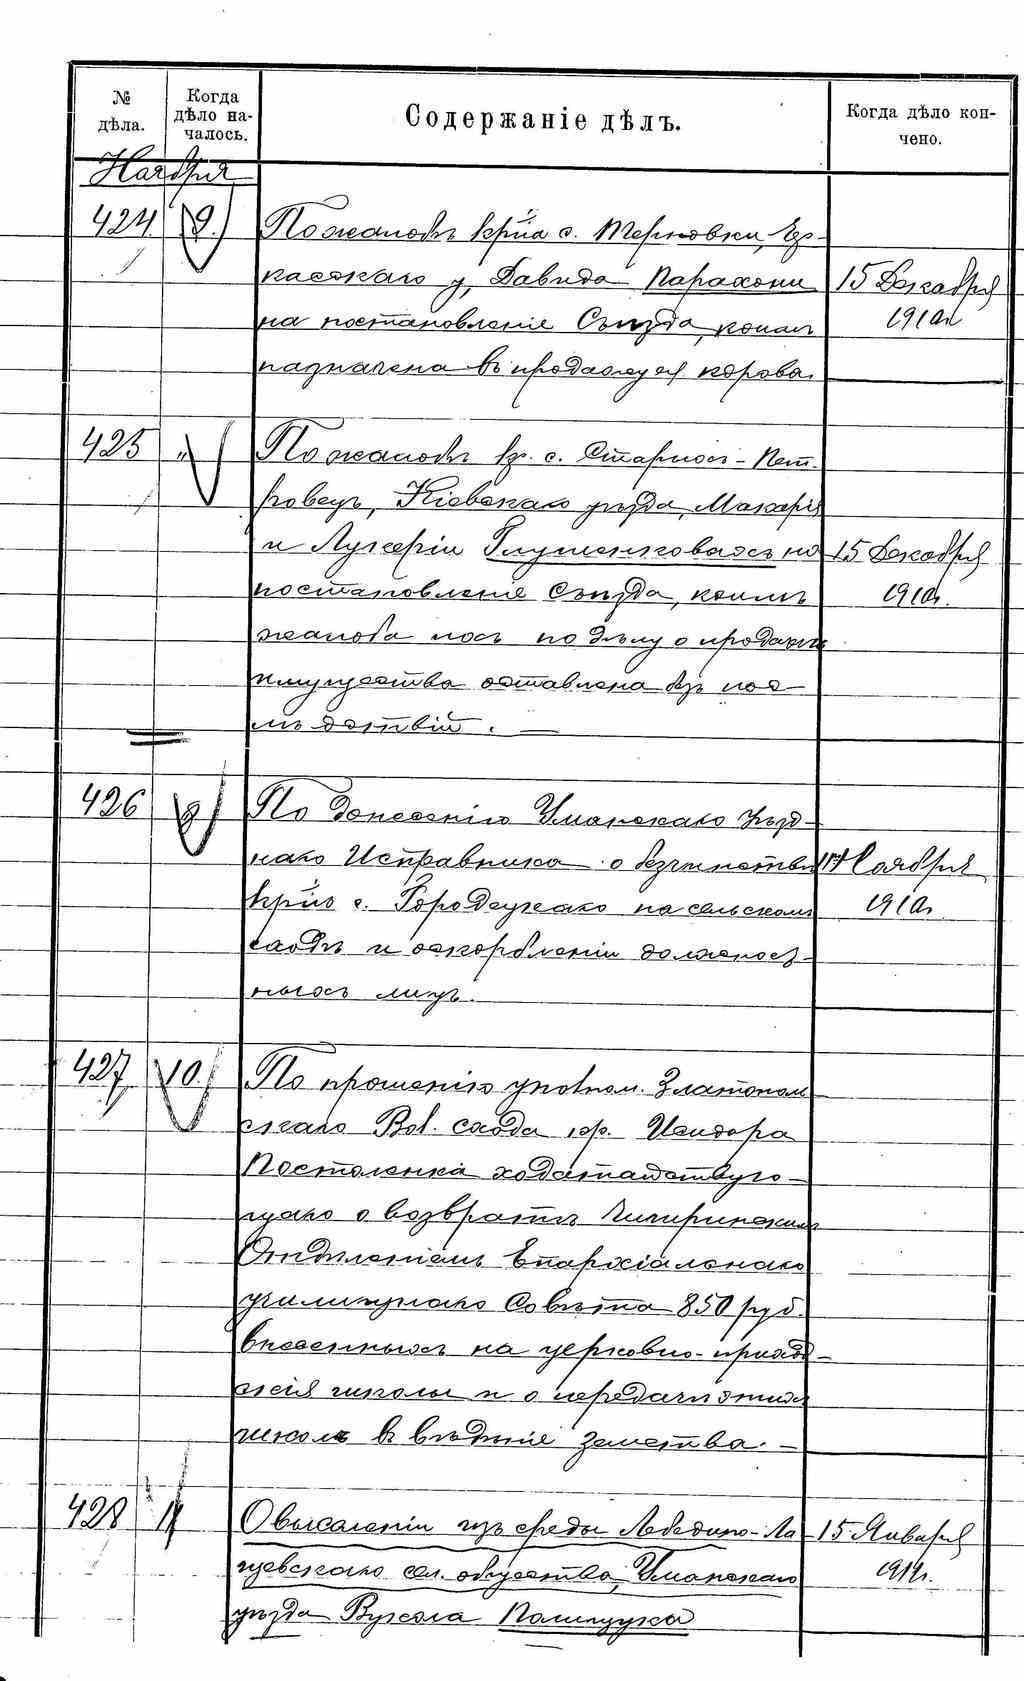 № дѣла.
Когда дѣло началось.
Содержаніе дѣлъ.
Когда дѣло кончено.
Ноября
424. 9. По жалобѣ кр-на с. Терновки, Чер-
касскаго у, Давида Парахони 15 Декабря
на постановленіе Съѣзда, коимъ 1910г.
назначена въ продажу его корова.
425 " По жалобѣ кр. с. Старыхъ-Пет-
ровецъ, Кіевскаго уѣзда, Макарія
и Лукеріи Глушенковыхъ на 15 Декабря
постановленіе Съѣзда, коимъ 1910г.
жалоба ихъ по дѣлу о продажѣ
имущества оставлена безъ пос-
лѣдствій. —
426 9 По донесенію Уманскаго Уѣзд-
наго Исправника о безчинствѣ Ноября
кр-нъ с. Городецкаго на сельскомъ 1910г.
сходѣ и оскорбленіи должност-
ныхъ лицъ.
427 10. По прошенію уполном. Златополь-
скаго Вол. схода, кр. Исидора
Постоленка ходатайствую-
щаго о возвратѣ Чигиринскимъ
Отдѣленіемъ Епархіальнаго
училищнаго Совѣта 850 руб.
внесенныхъ на церковно-приход-
скія школы и о передачи этихъ
школъ въ вѣдѣніе Земства. —
428 11 О выселеніи изъ среды Лебедино- 15 Января
сел. общества, Уманскаго 1911г.
уѣзда Вукола Полищука